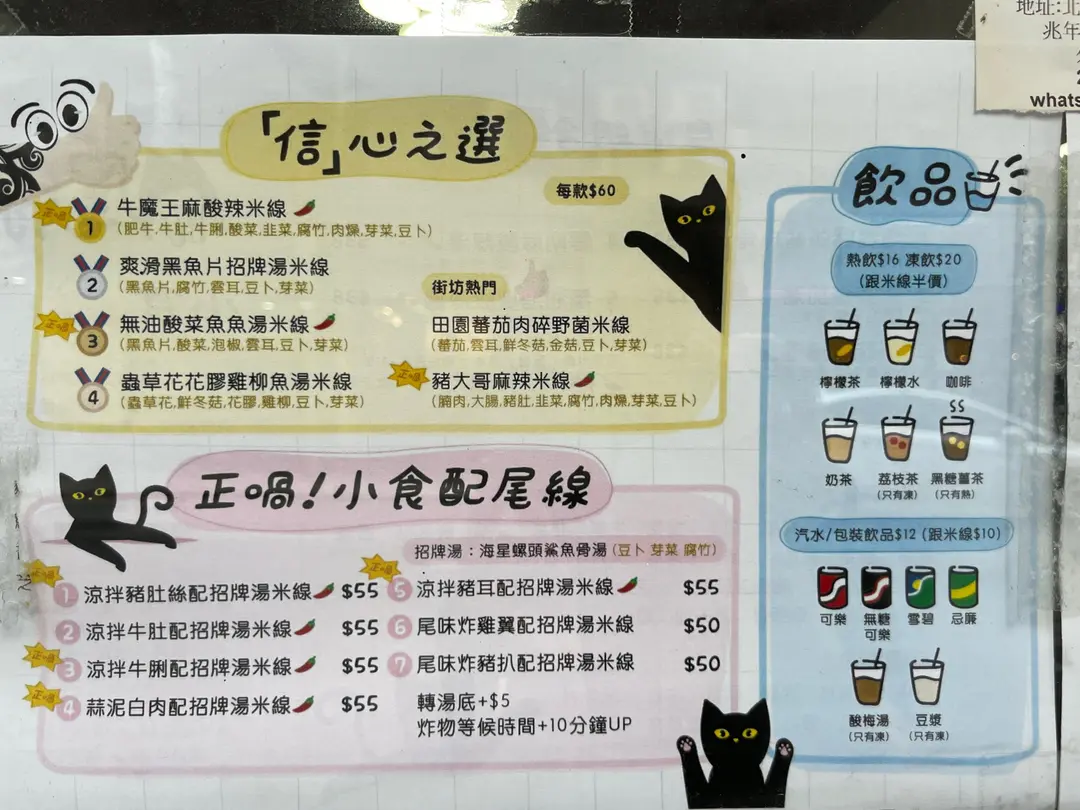 地址:北
兆年
whats
「信」心之選
每款$60
正喎
1
牛魔王麻酸辣米線
(肥牛,牛肚,牛脷,酸菜,韭菜,腐竹,肉燥,芽菜,豆卜)
2
爽滑黑魚片招牌湯米線
(黑魚片,腐竹,雲耳,豆卜,芽菜)
正喎
3
無油酸菜魚魚湯米線
(黑魚片,酸菜,泡椒,雲耳,豆卜,芽菜)
4
蟲草花花膠雞柳魚湯米線
(蟲草花,鮮冬菇,花膠,雞柳,豆卜,芽菜)
街坊熱門
田園蕃茄肉碎野菌米線
(蕃茄,雲耳,鮮冬菇,金菇,豆卜,芽菜)
正喎
豬大哥麻辣米線
(腩肉,大腸,豬肚,韭菜,腐竹,肉燥,芽菜,豆卜)
正喎!小食配尾線
招牌湯:海星螺頭鯊魚骨湯(豆卜 芽菜 腐竹)
正喎
1 涼拌豬肚絲配招牌湯米線 $55
2 涼拌牛肚配招牌湯米線 $55
正喎
3 涼拌牛脷配招牌湯米線 $55
正喎
4 蒜泥白肉配招牌湯米線 $55
正喎
5 涼拌豬耳配招牌湯米線 $55
6 尾味炸雞翼配招牌湯米線 $50
7 尾味炸豬扒配招牌湯米線 $50
轉湯底+$5
炸物等候時間+10分鐘UP
飲品
熱飲$16 凍飲$20
(跟米線半價)
檸檬茶 檸檬水 咖啡
奶茶 荔枝茶 黑糖薑茶
(只有凍) (只有熱)
汽水/包裝飲品$12 (跟米線$10)
可樂 無糖可樂 雪碧 忌廉
酸梅湯 豆漿
(只有凍) (只有凍)